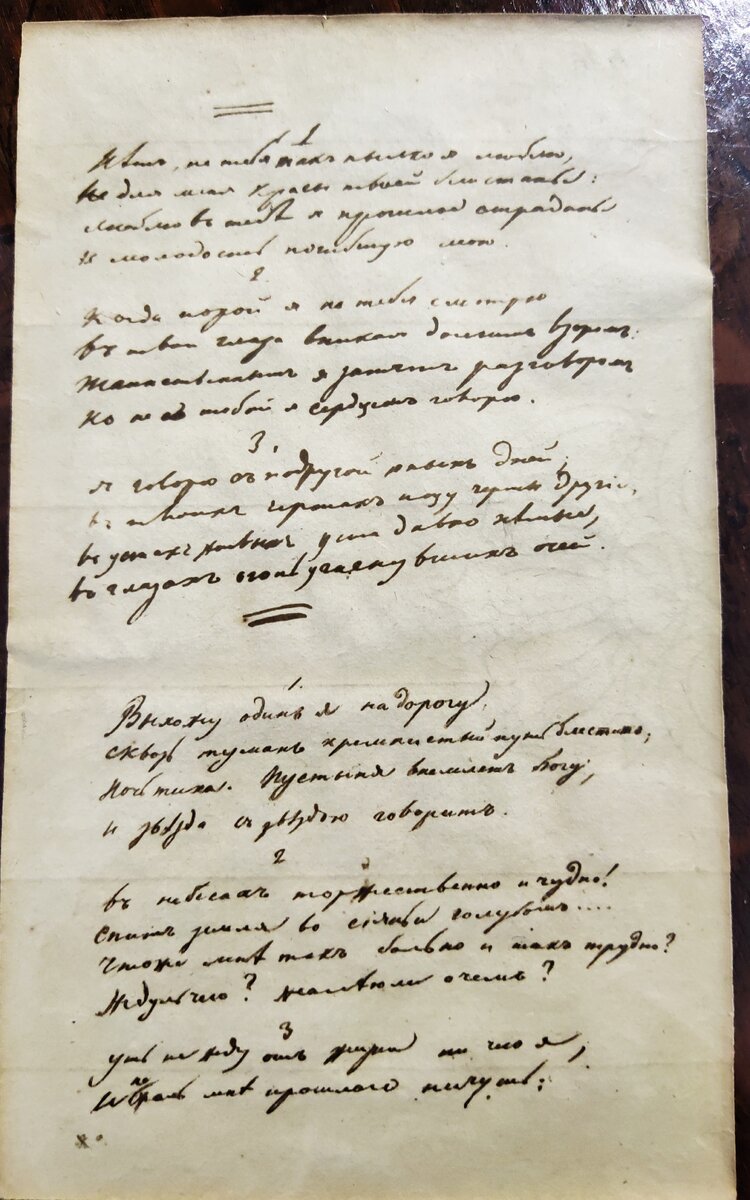 1
Нѣтъ, не тебя такъ пылко я люблю,
Не для меня красы твоей блистанье:
Люблю въ тебѣ я прошлое страданье
И молодость погибшую мою.
2
Когда порой я на тебя смотрю
Въ твои глаза вникая долгимъ взоромъ:
Таинственнымъ я занятъ разговоромъ
Но не съ тобой я сердцемъ говорю.
3.
Я говорю съ подругой юныхъ дней;
Въ твоихъ чертахъ ищу черты другіе,
Въ устахъ живыхъ уста давно нѣмые,
Въ глазахъ огонь угаснувшихъ очей.
1.
Выхожу одинъ я на дорогу,
Сквозь туманъ кремнистый путь блеститъ;
Ночь тиха. Пустыня внемлетъ Богу,
И звѣзда съ звѣздою говоритъ.
2
Въ небесахъ торжественно и чудно!
Спитъ земля въ сіяньи голубомъ....
Чтоже мнѣ такъ больно и такъ трудно?
Жду ль чего? жалѣю ли о чемъ?
3
Ужъ не жду отъ жизни ни чего я,
И не жаль мнѣ прошлаго ничуть;